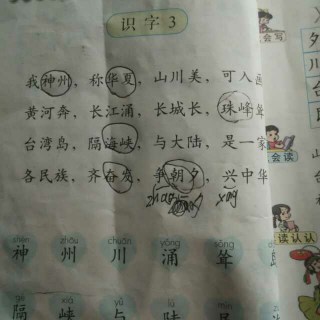 识字3
我神州，称华夏，山川美，可入画
黄河奔，长江涌，长城长，珠峰耸
台湾岛，隔海峡，与大陆，是一家
各民族，齐奋发，争朝夕，兴中华
xīng
shén zhōu chuān yǒng sǒng
神 州 川 涌 耸
gé xiá yǔ lù
隔 峡 与 陆 民
会写
会读
读认认